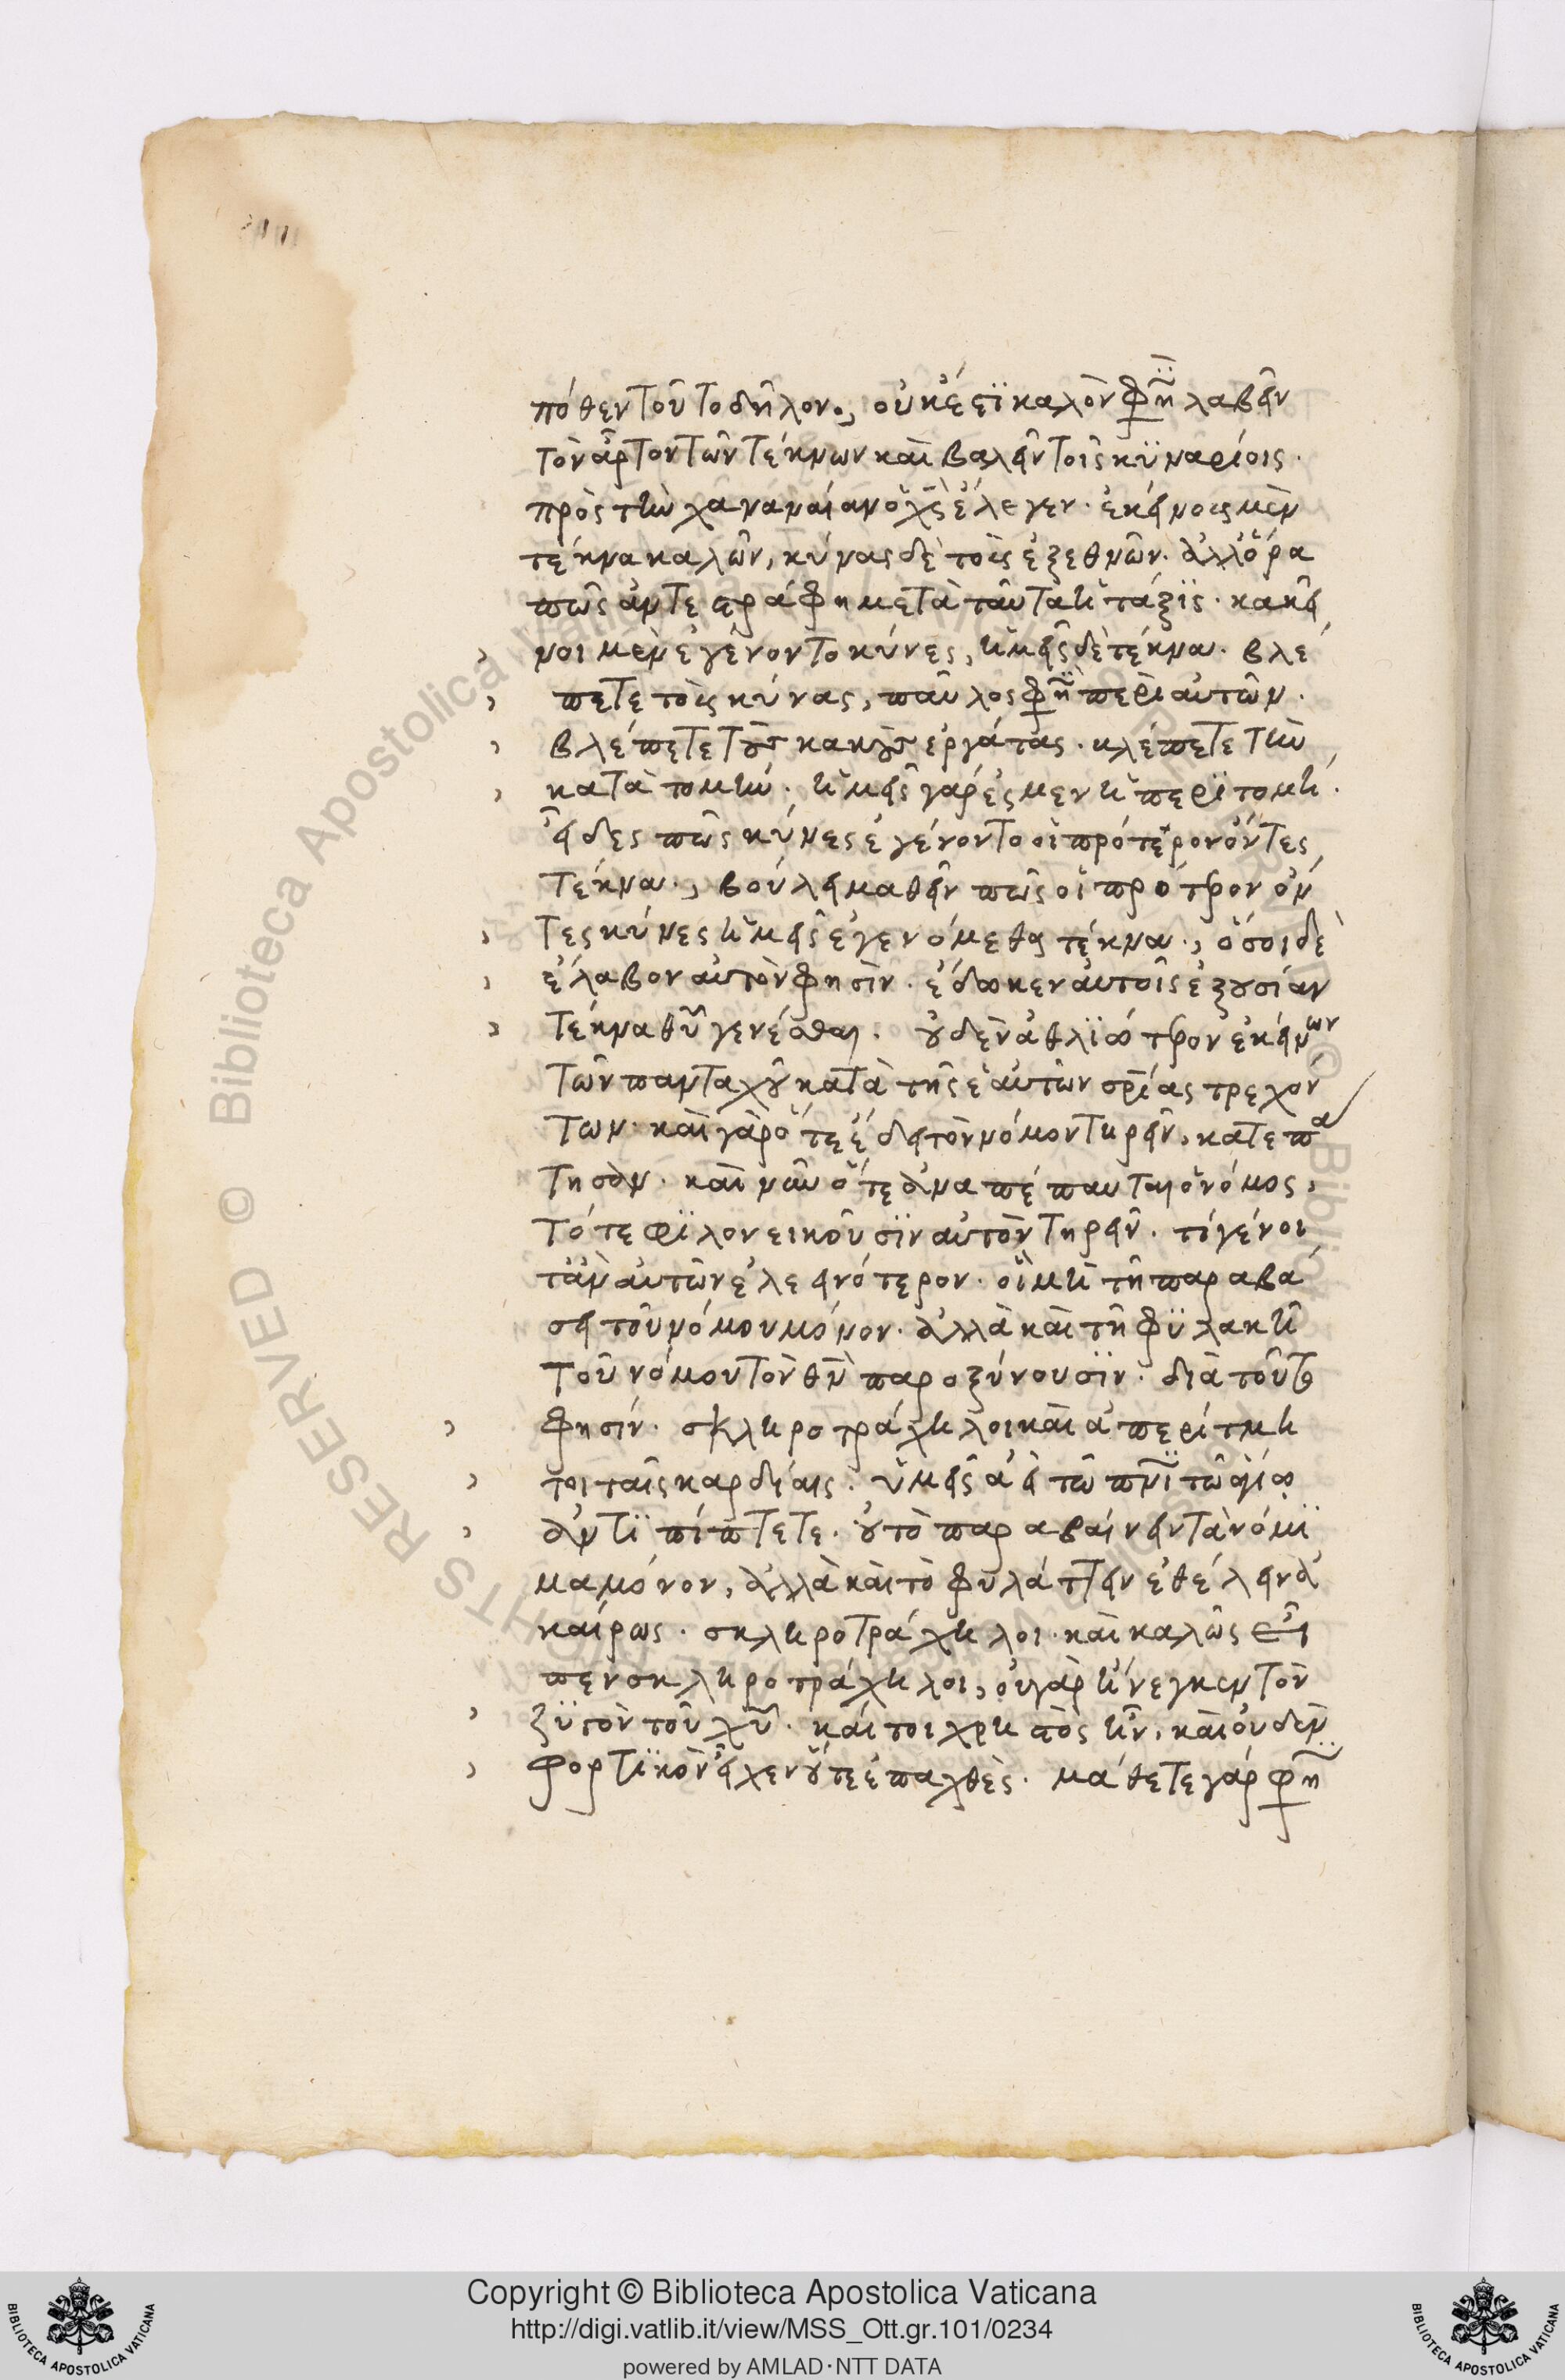 πόθεν τοῦτο δῆλον; οὐκ ἔξεϊ καλὸν φη λαβεῖν
τὸν ἄρτον τῶν τέκνων καὶ βαλεῖν τοῖς κϋναρίοις.
πρὸς τὴν χαναναίαν ὁ χς ἔλεγεν. ἐκείνους μὲν
τέκνα καλῶν, κύνας δὲ τοὺς ἐξ ἐθνῶν. ἀλλ' ὅρα
πῶς ἀντεστράφη μετὰ ταῦτα ἡ τάξϊς. κακεῖ
νοι μὲν ἐγένοντο κύνες, ἡμεῖς δὲ τέκνα. βλέ
πετε τοὺς κύνας, παῦλος φη περὶ αὐτῶν.
βλέπετε τοὺς κακοὺς ἐργάτας. βλέπετε τὴν
κατατομήν. ἡμεῖς γάρ ἐσμεν ἡ περϊτομή.
εἶδες πῶς κύνες ἐγένοντο οἱ πρότερον ὄντες
τέκνα; βούλει μαθεῖν πῶς οἱ πρότερον ὄν
τες κύνες ἡμεῖς ἐγενόμεθα τέκνα; ὅσοι δὲ
ἔλαβον αὐτὸν φησὶν. ἔδωκεν αὐτοῖς ἐξουσίαν
τέκνα θυ γενέσθαι. οὐδὲν ἀθλϊώτερον ἐκείνων
τῶν πανταχοῦ κατὰ τῆς ἑαυτῶν σρίας τρεχόν
των. καὶ γὰρ ὅτε ἔδει τὸν νόμον τηρεῖν, κατεπά
τησαν. καὶ νῦν ὅτε ἀναπέπαυται ὁ νόμος,
τότε φϊλονεικοῦσϊν αὐτὸν τηρεῖν. τί γένοι
τ' ἂν αὐτῶν ἐλεεινότερον. οἳ μὴ τῆ παραβά
σει τοῦ νόμου μόνον. ἀλλὰ καὶ τῆ φϋλακῆ
τοῦ νόμου τὸν θν παροξύνουσϊν. διὰ τοῦτο
φησίν. σκληροτράχηλοι καὶ ἀπερίτμη
τοι ταῖς καρδίαις. ὑμεῖς ἀεὶ τῶ πνϊ τῶ ἁγίω
ἀντϊπίπτετε. οὐ τὸ παραβαίνειν τὰ νόμϊ
μα μόνον, ἀλλὰ καὶ τὸ φυλάττειν ἐθέλειν ἀ
καίρως. σκληροτράχηλοι. καὶ καλῶς εἶ
πεν σκληροτράχηλοι, οὐ γὰρ ἤνεγκεν τὸν
ζϋγὸν τοῦ χυ. καίτοι χρηστὸς ἦν, καὶ οὐδὲν
φορτϊκὸν εἶχεν οὔτε ἐπαχθὲς. μάθετε γάρ φη